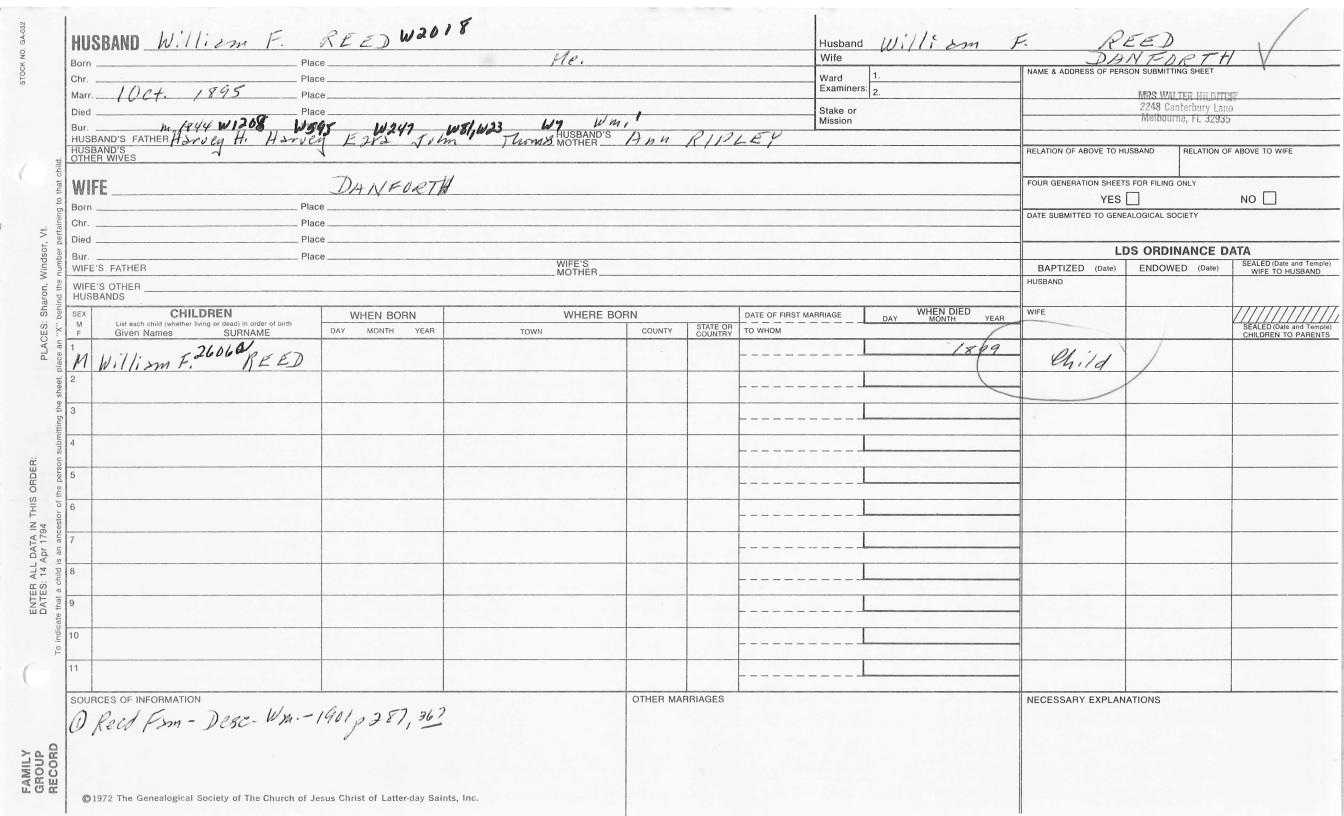 STOCK NO. GA-032
HUSBAND William F. REED W2018
Born Place Me.
Chr. Place
Marr. 1 Oct. 1895 Place
Died Place
Bur. m. 1844 W1208 W595 W247 W81, W23 W7 Wm, 1
HUSBAND'S FATHER Harvey H. Harvey Ezra John Thomas HUSBAND'S MOTHER Ann RIPLEY
HUSBAND'S OTHER WIVES
Husband William F. REED
Wife DANFORTH
Ward Examiners: 1.
2.
Stake or Mission
NAME & ADDRESS OF PERSON SUBMITTING SHEET
MRS. WALTER
2248 Canterbury Lane
Melbourne, FL 32935
RELATION OF ABOVE TO HUSBAND RELATION OF ABOVE TO WIFE
FOUR GENERATION SHEETS FOR FILING ONLY
YES NO
DATE SUBMITTED TO GENEALOGICAL SOCIETY
WIFE DANFORTH
Born Place
Chr. Place
Died Place
Bur. Place
WIFE'S FATHER WIFE'S MOTHER
WIFE'S OTHER HUSBANDS
LDS ORDINANCE DATA
BAPTIZED (Date) ENDOWED (Date) SEALED (Date and Temple) WIFE TO HUSBAND
HUSBAND
WIFE
SEALED (Date and Temple) CHILDREN TO PARENTS
SEX M F
CHILDREN
List each child (whether living or dead) in order of birth
Given Names SURNAME
WHEN BORN
DAY MONTH YEAR
WHERE BORN
TOWN COUNTY STATE OR COUNTRY
DATE OF FIRST MARRIAGE
TO WHOM
WHEN DIED
DAY MONTH YEAR
1 M William F. REED 1899 Child
2
3
4
5
6
7
8
9
10
11
SOURCES OF INFORMATION
① Reed Fam - Desc - Wm. - 1901 p 287, 367
OTHER MARRIAGES
NECESSARY EXPLANATIONS
©1972 The Genealogical Society of The Church of Jesus Christ of Latter-day Saints, Inc.
FAMILY GROUP RECORD
ENTER ALL DATA IN THIS ORDER:
DATES: 14 Apr 1794
PLACES: Sharon, Windsor, Vt.
To indicate that a child is an ancestor of the person submitting the sheet, place an "X" behind the number pertaining to that child.